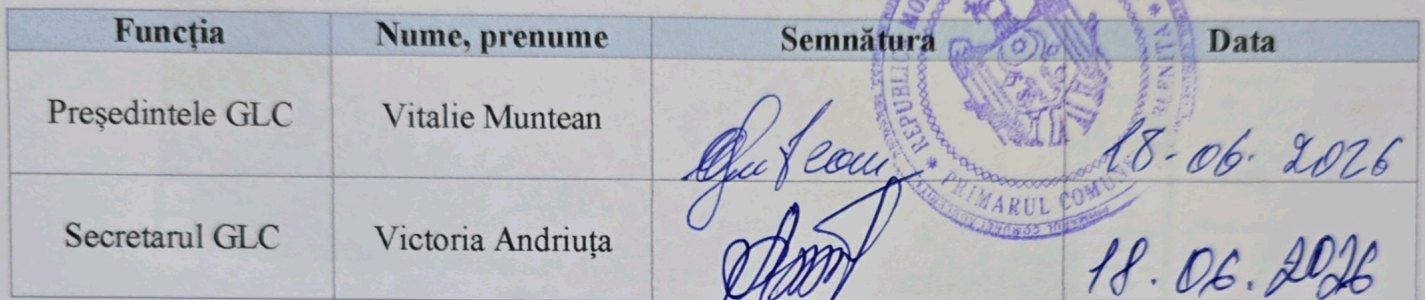 Funcția Nume, prenume Semnătura Data
Președintele GLC Vitalie Muntean 18-06-2026
Secretarul GLC Victoria Andriuța 18.06.2026
* REPUBLICA MO
* PRIMARUL COMUNE